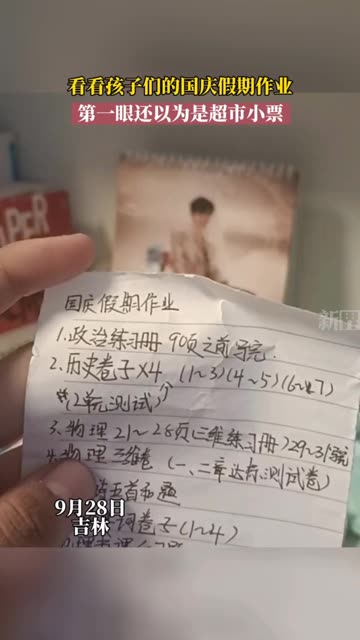 看看孩子们的国庆假期作业
第一眼还以为是超市小票
国庆假期作业
1.政治练习册 90页之前写完.
2.历史卷子×4 (1~3)(4~5)(6~7)
(2单元测试)
3.物理21~28页(三维练习册)29~31
4.物理三维卷(一、二章达标测试卷)
五首
词卷子(1~4)
9月28日
吉林